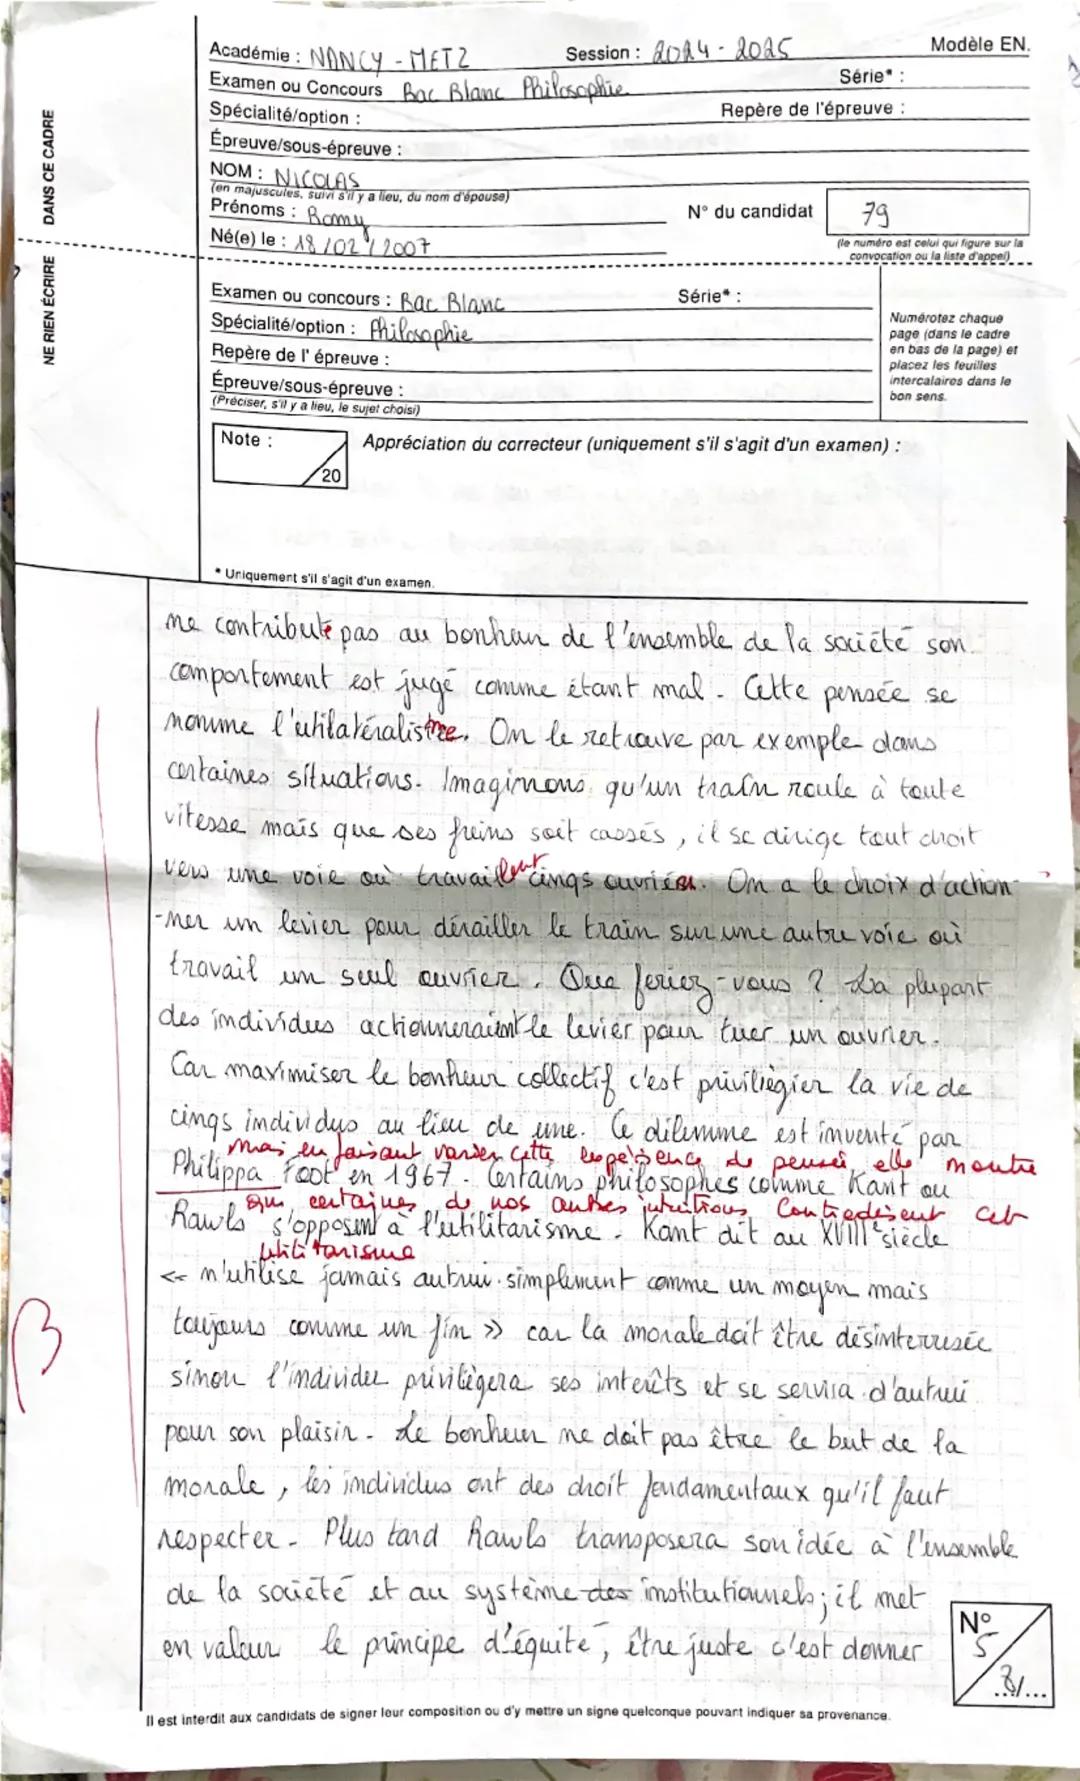 Académie : NANCY - METZ Session : 2024 - 2025 Modèle EN.
Examen ou Concours Bac Blanc Philosophie Série* :
Spécialité/option : Repère de l'épreuve :
Épreuve/sous-épreuve :
NOM : NICOLAS
(en majuscules, suivi s'il y a lieu, du nom d'épouse)
Prénoms : Romy N° du candidat 79
Né(e) le : 18/02/2007 (le numéro est celui qui figure sur la convocation ou la liste d'appel)
NE RIEN ÉCRIRE DANS CE CADRE
Examen ou concours : Bac Blanc Série* :
Spécialité/option : Philosophie
Repère de l' épreuve :
Épreuve/sous-épreuve :
(Préciser, s'il y a lieu, le sujet choisi)
Numérotez chaque
page (dans le cadre
en bas de la page) et
placez les feuilles
intercalaires dans le
bon sens.
Note : Appréciation du correcteur (uniquement s'il s'agit d'un examen) :
20
* Uniquement s'il s'agit d'un examen.
ne contribute pas au bonheur de l'ensemble de la société son
comportement est jugé comme étant mal. Cette pensée se
nomme l'utilatéralisme. On le retrouve par exemple dans
certaines situations. Imaginons qu'un train roule à toute
vitesse mais que ses freins soit cassés, il se dirige tout droit
vers une voie où travaillent cinqs ouvriers. On a le choix d'action-
-ner un levier pour dérailler le train sur une autre voie où
travail un seul ouvrier. Que feriez-vous ? La plupart
des individus actionneraient le levier pour tuer un ouvrier.
Car maximiser le bonheur collectif c'est priviliégier la vie de
cinqs individus au lieu de une. Ce dilemme est inventé par
mais en faisant varier cette expérience de pensée, elle montre
Philippa Foot en 1967. Certains philosophes comme Kant ou
que certaines de nos autres intuitions contredisent cet
Rawls s'opposent à l'utilitarisme. Kant dit au XVIII siècle
utilitarisme
<< n'utilise jamais autrui simplement comme un moyen mais
toujours comme un fin >> car la morale doit être désinterressée
sinon l'individu privilègera ses interêts et se servira d'autrui
pour son plaisir. Le bonheur ne doit pas être le but de la
morale, les individus ont des droit fondamentaux qu'il faut
respecter. Plus tard Rawls transposera son idée à l'ensemble
de la société et au système des institutionnels; il met
en valeur le principe d'équité, être juste c'est donner
N°
5
8/...
Il est interdit aux candidats de signer leur composition ou d'y mettre un signe quelconque pouvant indiquer sa provenance.